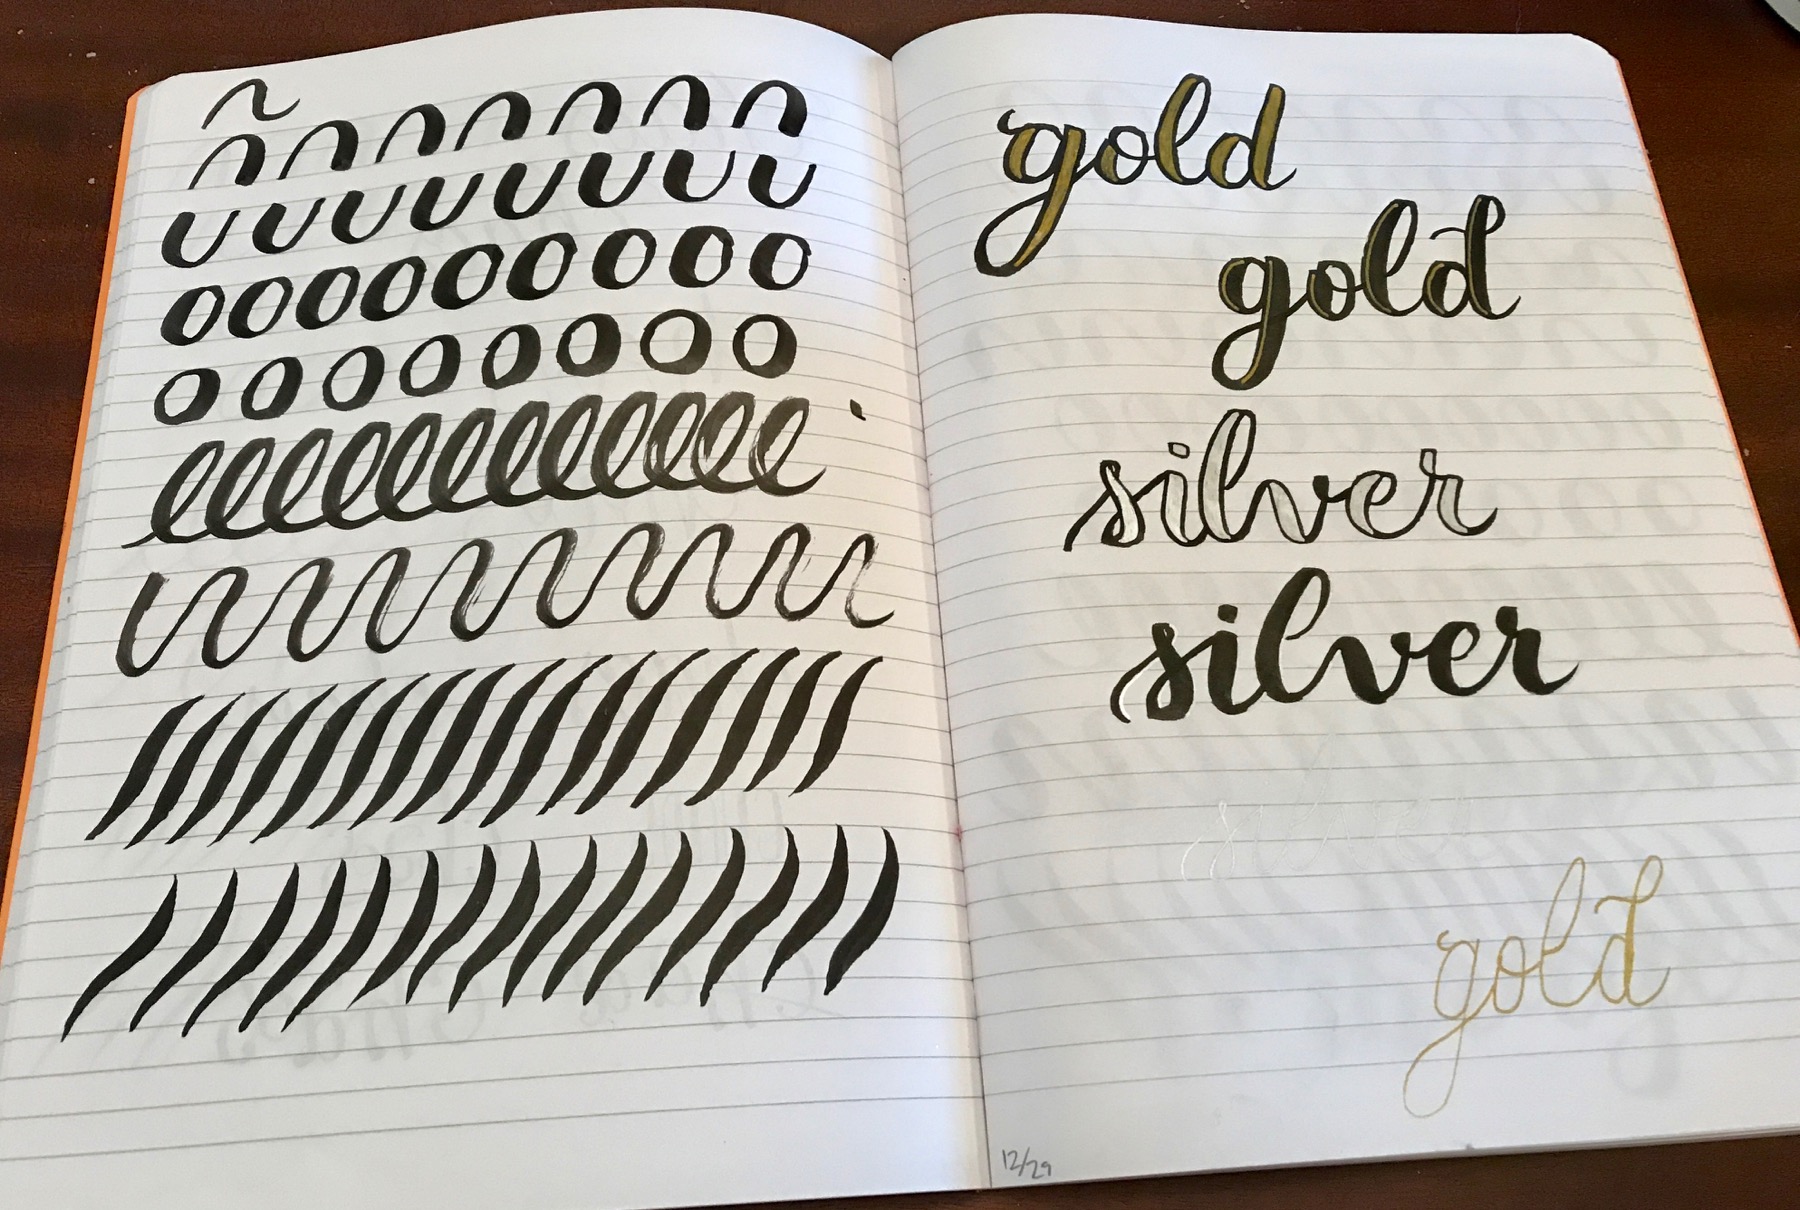 gold
gold
silver
silver
silver
gold
12/29